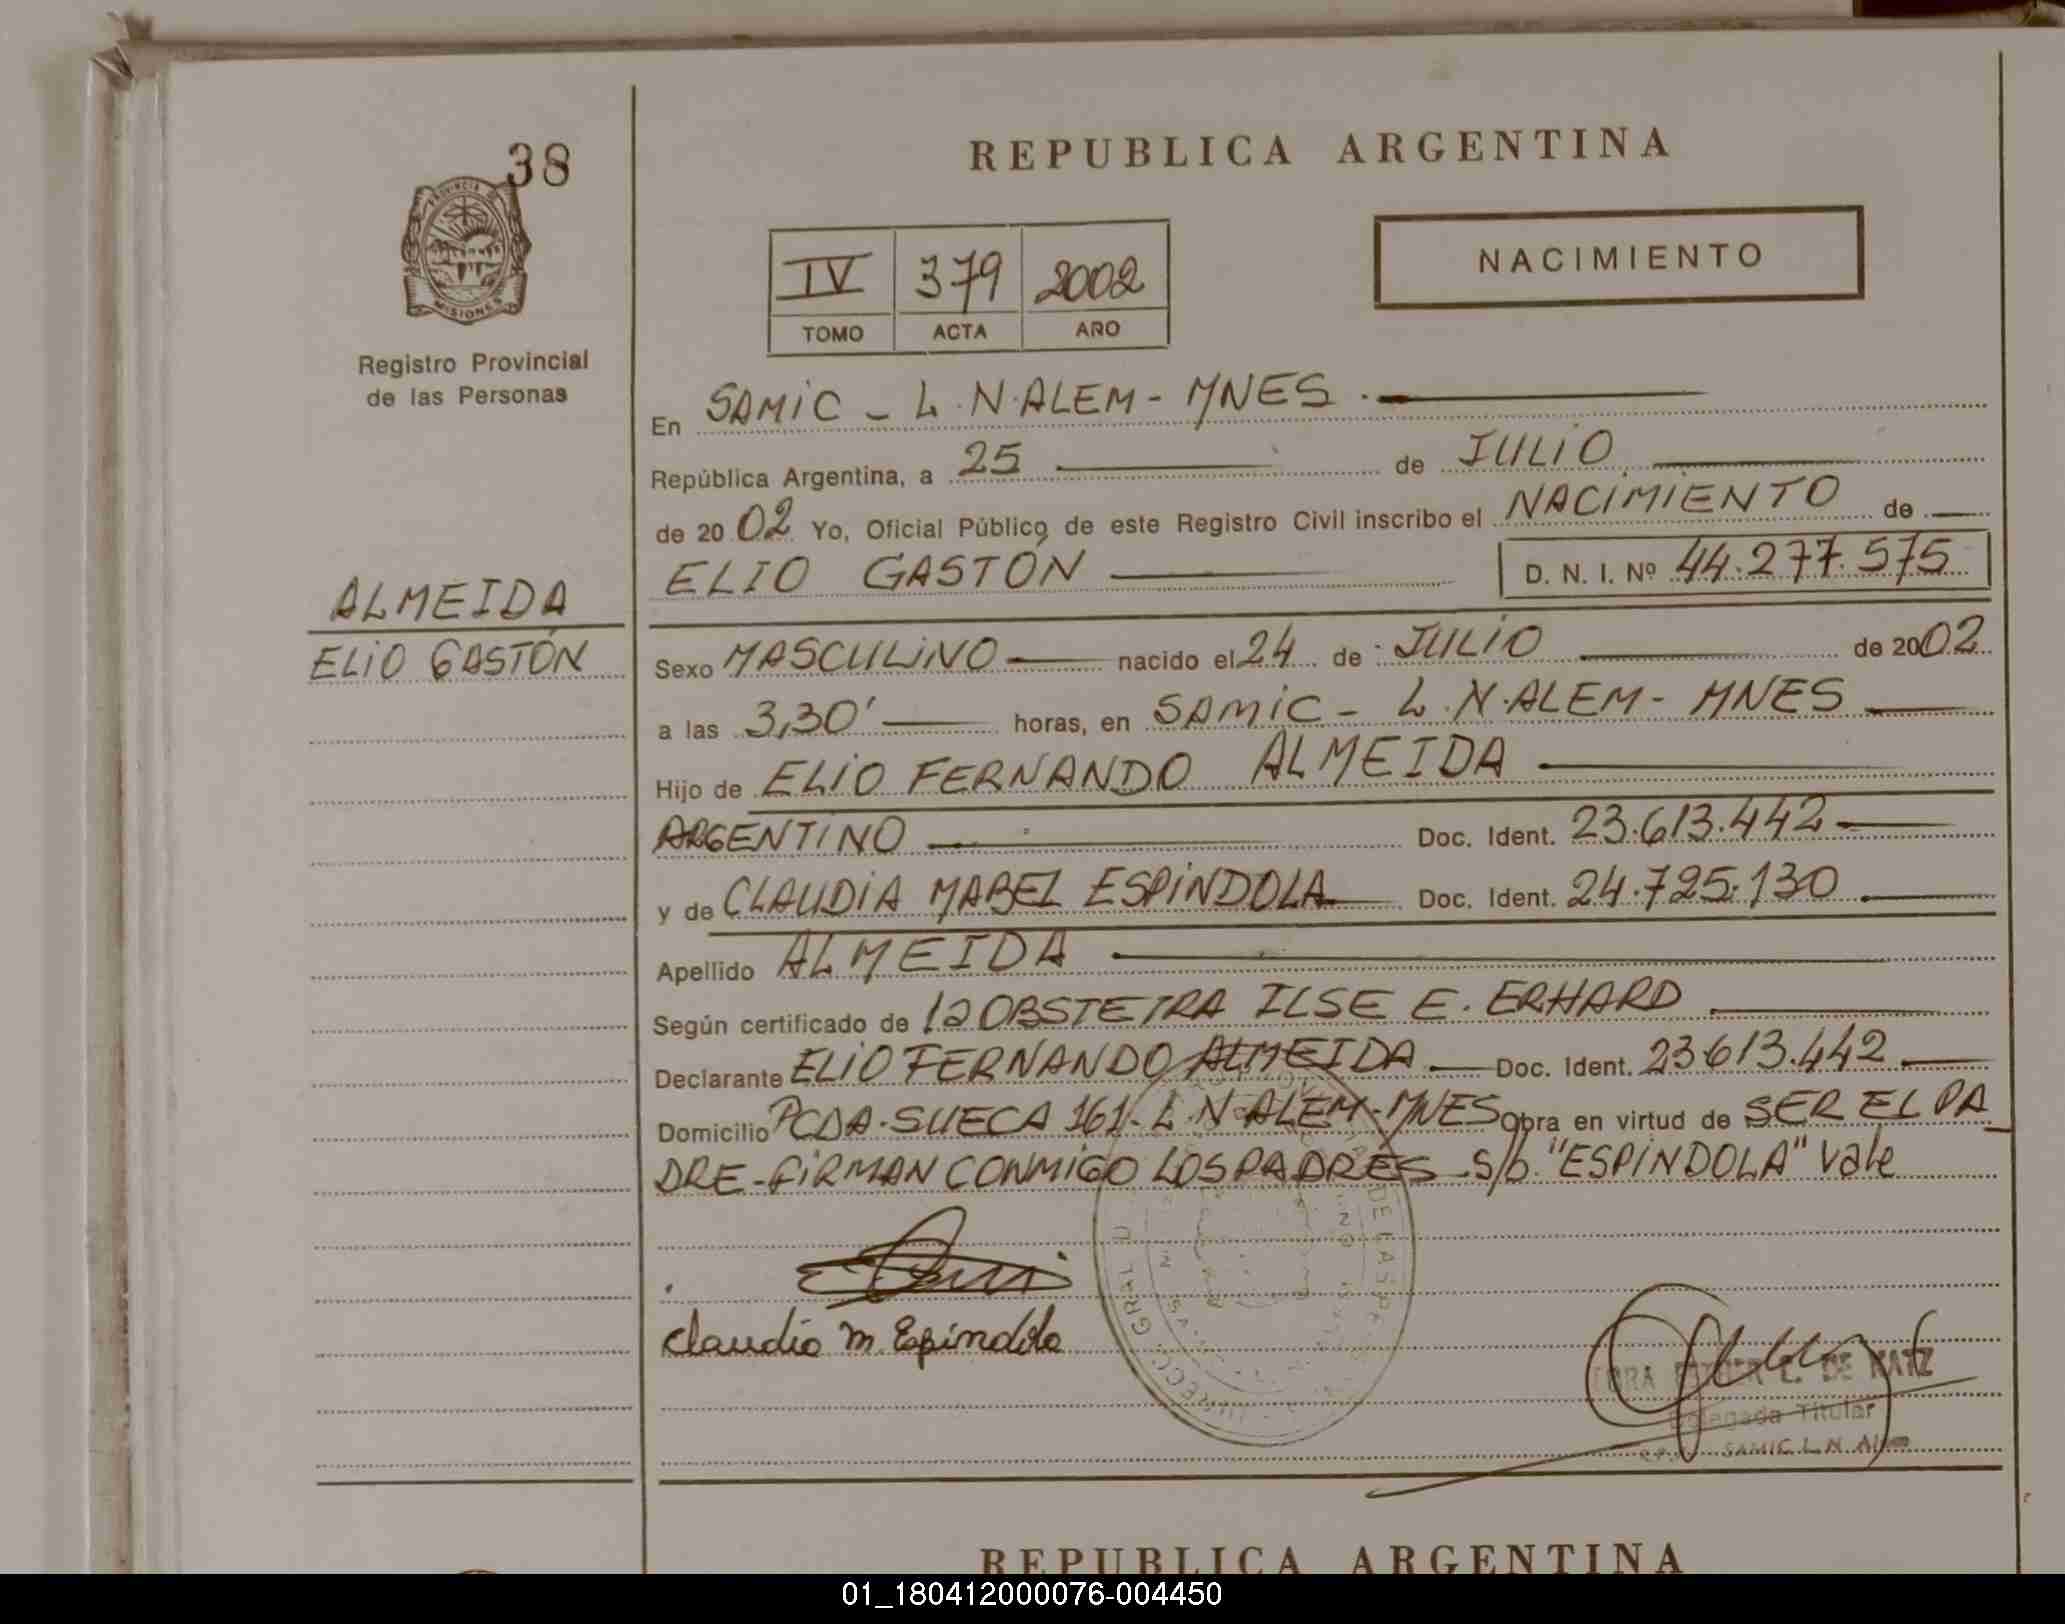 38
PROVINCIA DE
MISIONES
Registro Provincial
de las Personas
ALMEIDA
ELIO GASTÓN
REPUBLICA ARGENTINA
IV 379 2002
TOMO ACTA AÑO
NACIMIENTO
En SAMIC - L.N.ALEM - MNES.
República Argentina, a 25 de JULIO
de 2002 Yo, Oficial Público de este Registro Civil inscribo el NACIMIENTO de
ELIO GASTÓN D. N. I. Nº 44.277.575
Sexo MASCULINO nacido el 24 de JULIO de 2002
a las 3,30' horas, en SAMIC - L.N.ALEM - MNES
Hijo de ELIO FERNANDO ALMEIDA
ARGENTINO Doc. Ident. 23.613.442
y de CLAUDIA MABEL ESPINDOLA Doc. Ident. 24.725.130
Apellido ALMEIDA
Según certificado de la OBSTETRA ILSE E. ERHARD
Declarante ELIO FERNANDO ALMEIDA Doc. Ident. 23.613.442
Domicilio PCDA. SUECA 161- L.N.ALEM - MNES Obra en virtud de SER EL PA
DRE - FIRMAN CONMIGO LOS PADRES - S/b. "ESPINDOLA" Vale
Claudia M. Espindola
DE KATZ
Delegada Titular
SAMIC L.N. Alem
REPUBLICA ARGENTINA
01_180412000076-004450